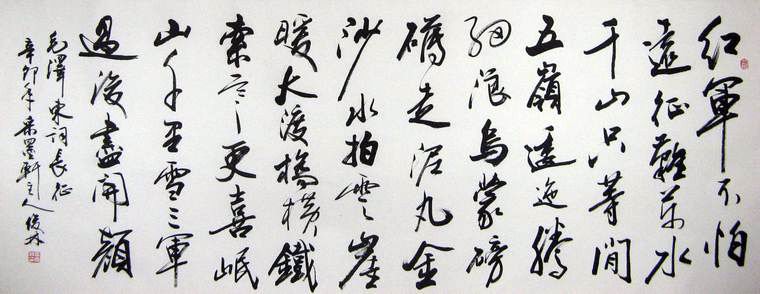 红軍不怕
遠征難萬水
千山只等閒
五嶺逶迤騰
细浪烏蒙磅
礴走泥丸金
沙水拍雲崖
暖大渡橋橫鐵
索寒更喜岷
山千里雪三軍
過後盡開顏
毛澤東詞長征
辛卯年墨軒主人俊林